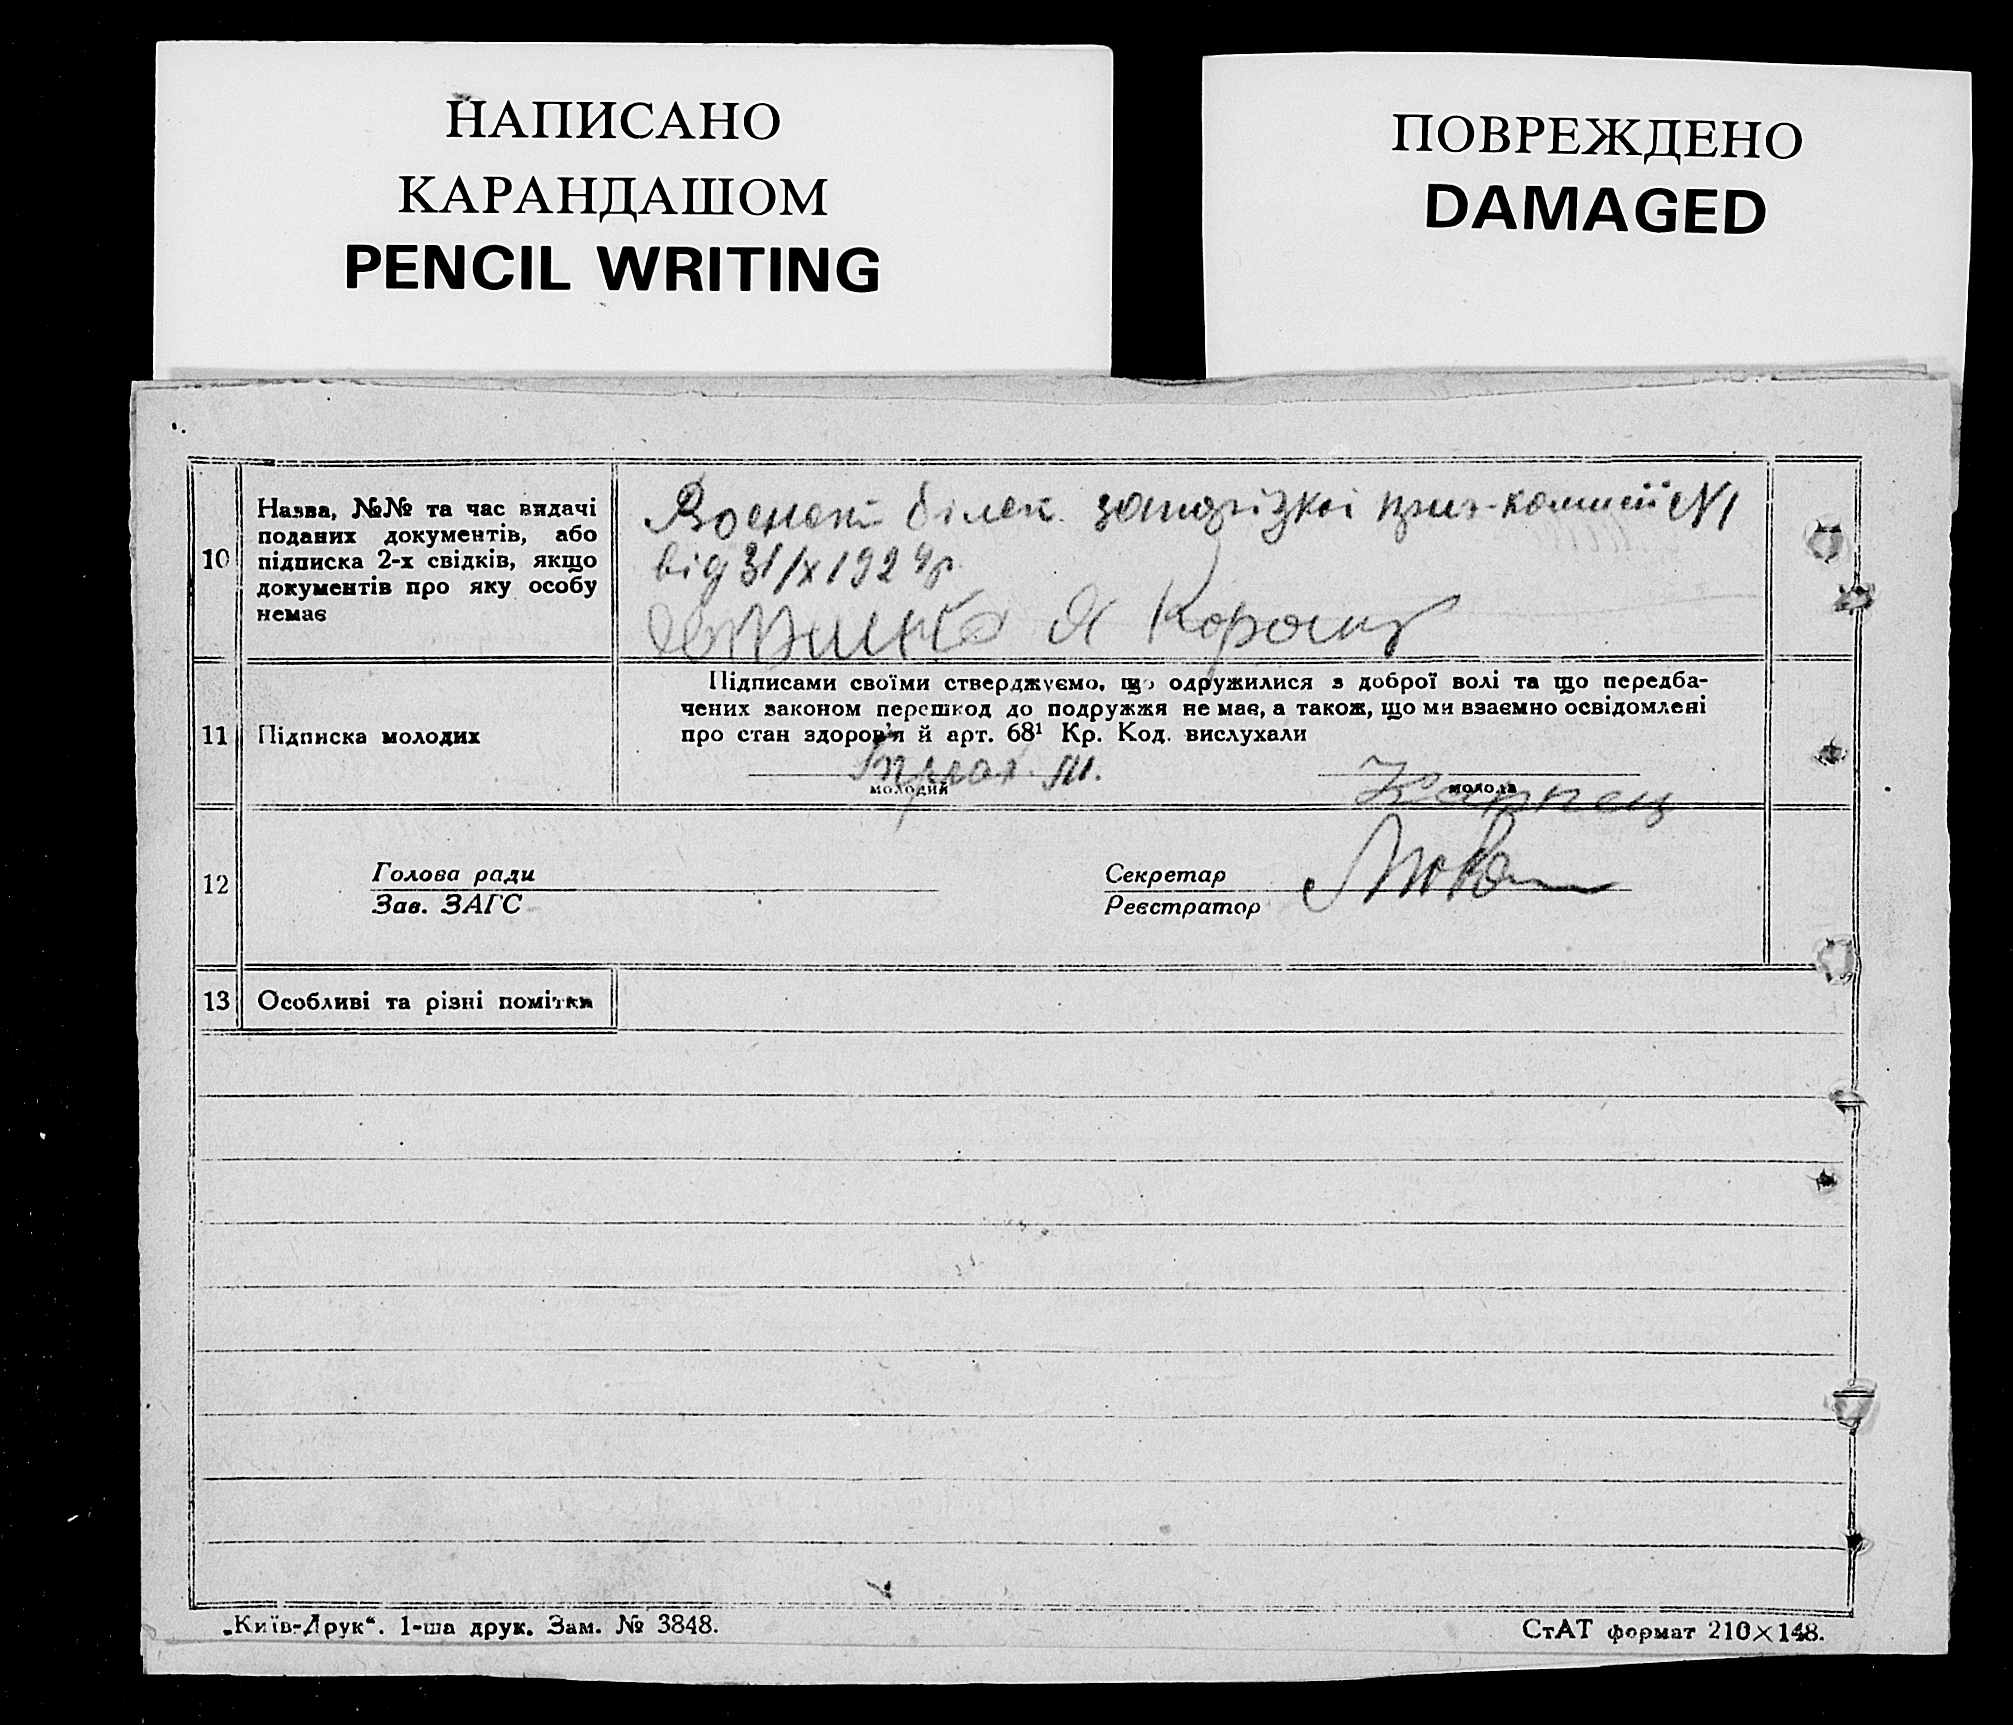 НАПИСАНО
КАРАНДАШОМ
PENCIL WRITING
ПОВРЕЖДЕНО
DAMAGED
10
Назва, №№ та час видачі
поданих документів, або
підписка 2-х свідків, якщо
документів про яку особу
немає
білет приз-комисії №1
від 31/X 1924р.
11
Підписка молодих
Підписами своїми стверджуємо, що одружилися з доброї волі та що передба-
чених законом перешкод до подружжя не має, а також, що ми взаємно освідомлені
про стан здоров'я й арт. 68¹ Кр. Код. вислухали
молодий
молода
12
Голова ради
Зав. ЗАГС
Секретар
Реєстратор
13
Особливі та різні помітки
„Київ-Друк“. 1-ша друк. Зам. № 3848.
СтАТ формат 210×148.